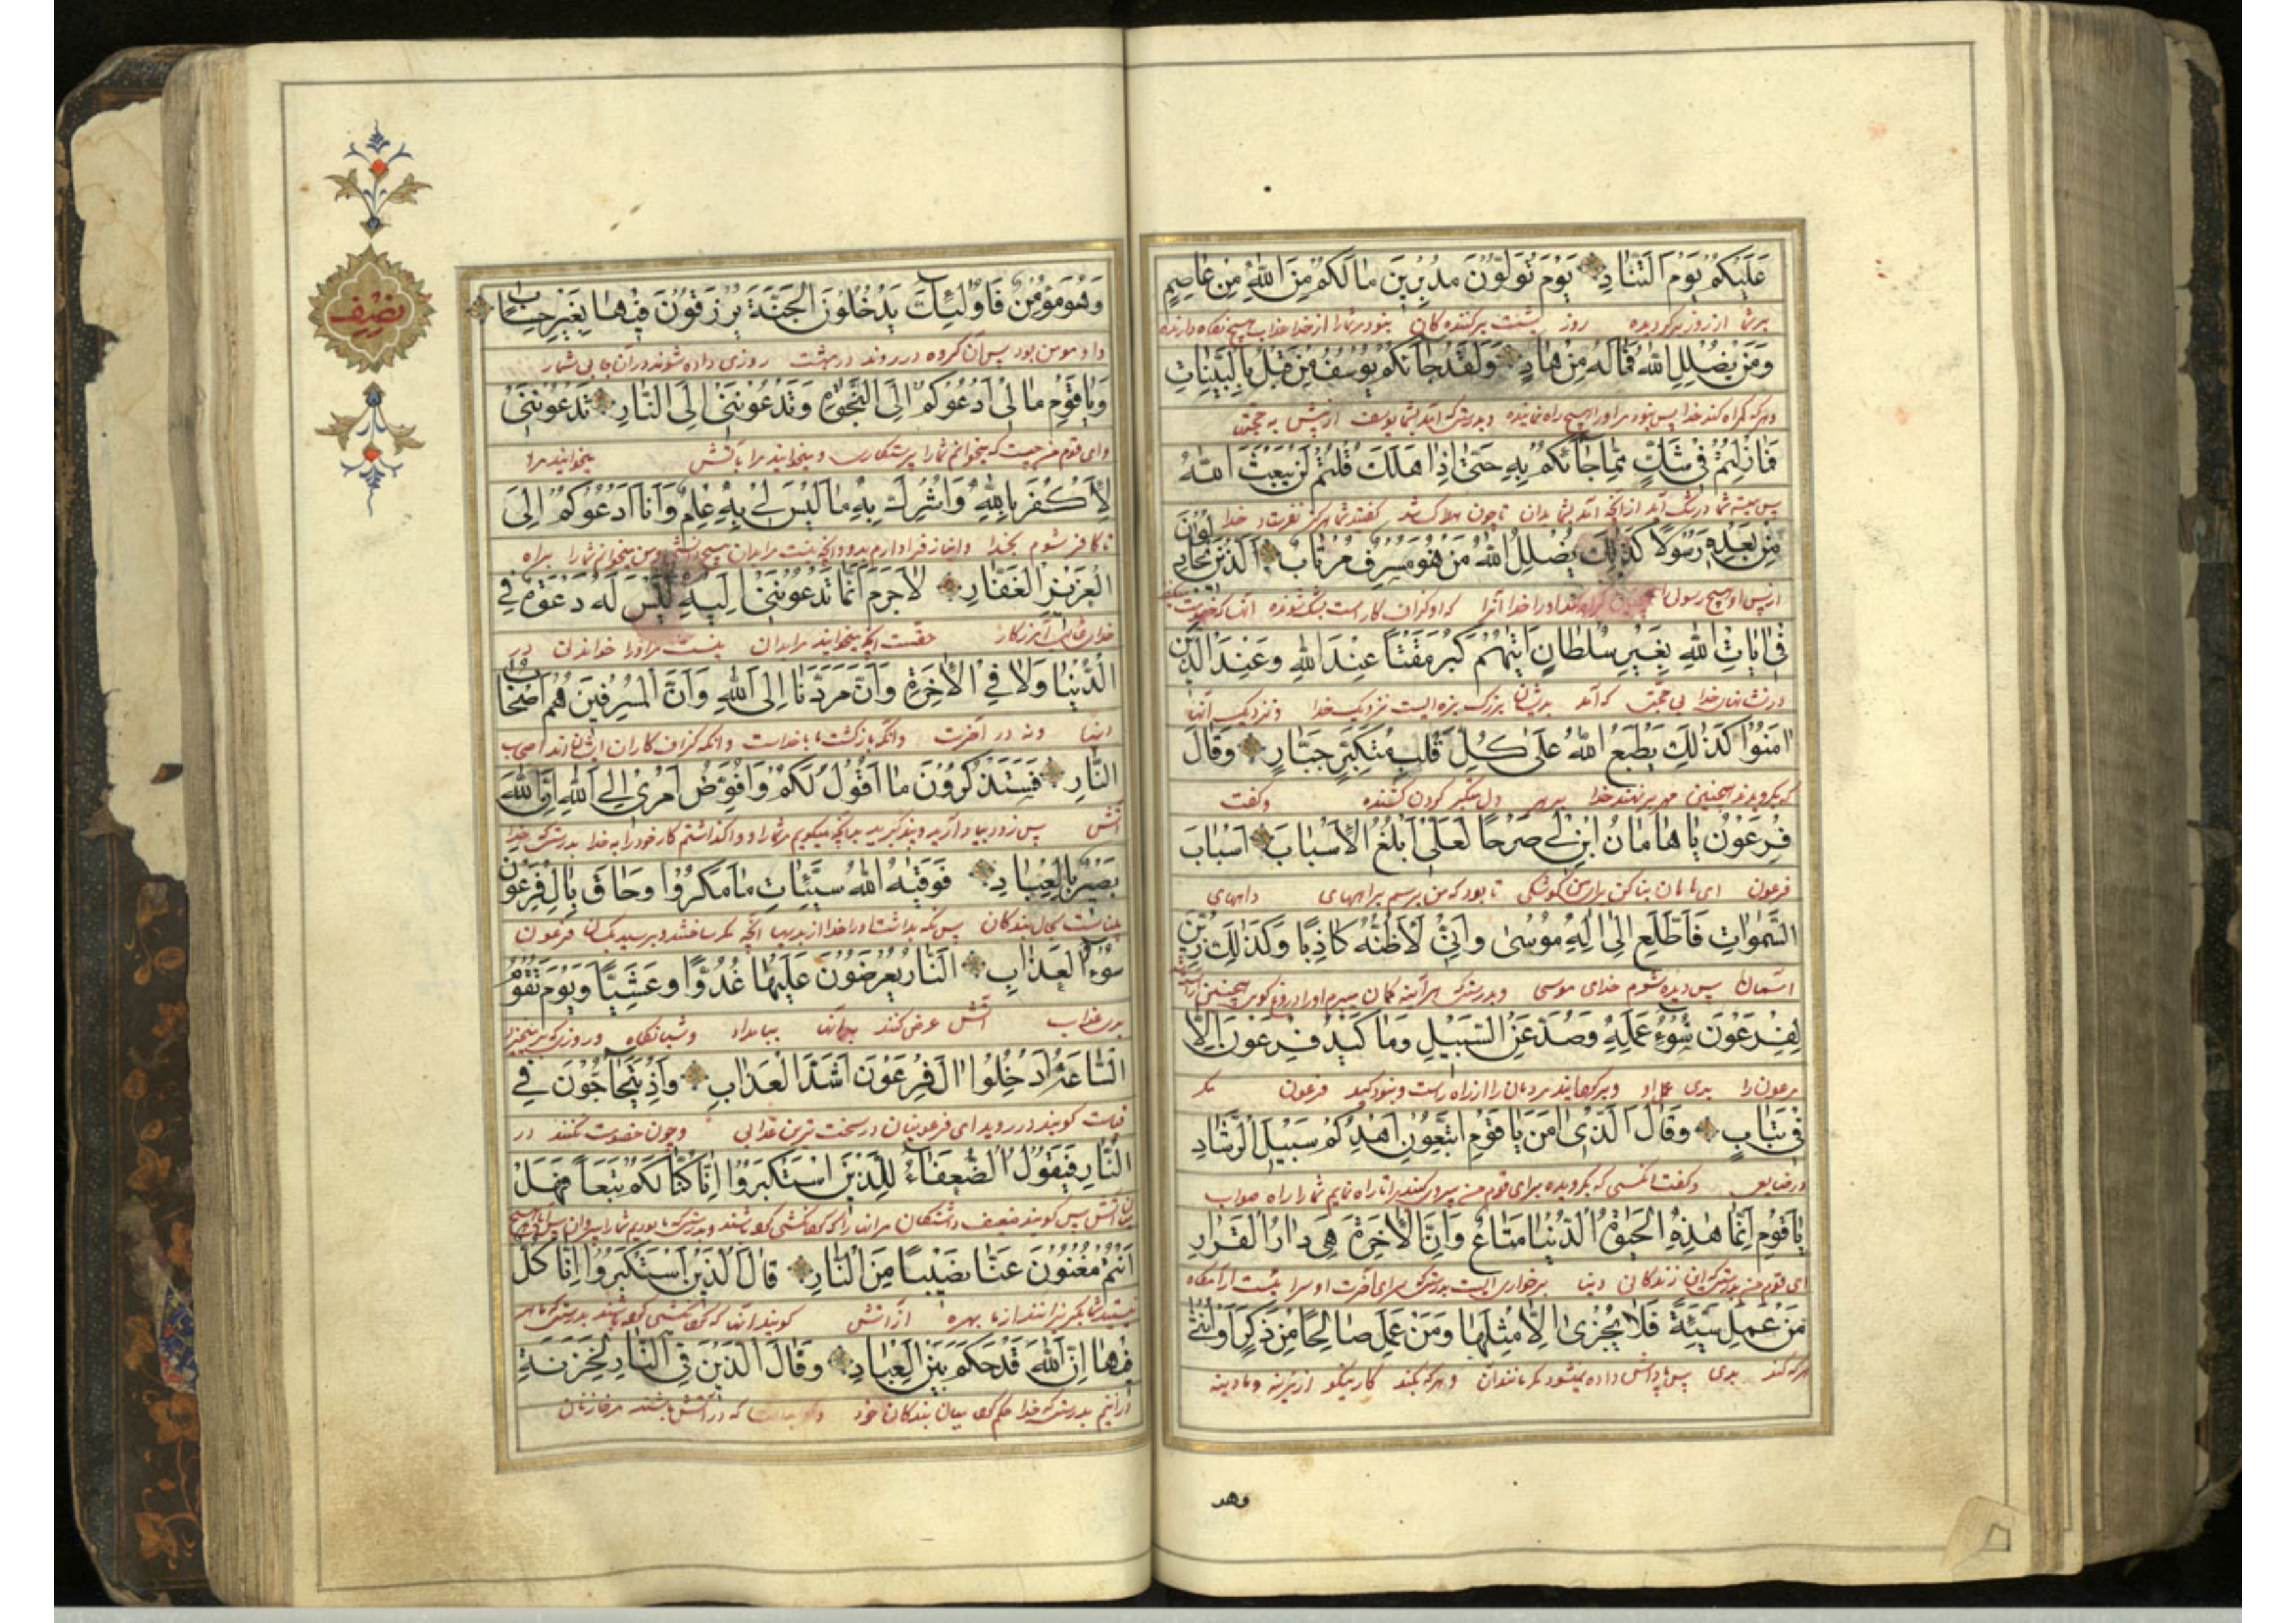 عَلَيْكُمْ يَوْمَ التَّنَادِ يَوْمَ تُوَلُّونَ مُدْبِرِينَ مَا لَكُمْ مِنَ اللّٰهِ مِنْ عَاصِمٍ
بر شما از روز روز پشت برکنندکان نبود مر شما را از خدا عذاب هیچ نکاه دارنده
وَمَنْ يُضْلِلِ اللّٰهُ فَمَا لَهُ مِنْ هَادٍ وَلَقَدْ جَاءَكُمْ يُوسُفُ مِنْ قَبْلُ بِالْبَيِّنَاتِ
و هر که کمراه کند خدا پس نبود مر او را هیچ راه نماینده و بدرستی که آمد بشما یوسف از پیش به حجتها
فَمَا زِلْتُمْ فِي شَكٍّ مِمَّا جَاءَكُمْ بِهِ حَتَّىٰ إِذَا هَلَكَ قُلْتُمْ لَنْ يَبْعَثَ اللّٰهُ
پس همیشه شما در شک از آنچه آمد بشما بدان تا چون هلاک شد کفتید هرکز نفرستاد خدا
مِنْ بَعْدِهِ رَسُولًا كَذَٰلِكَ يُضِلُّ اللّٰهُ مَنْ هُوَ مُسْرِفٌ مُرْتَابٌ الَّذِينَ يُجَادِلُونَ
از پس او هیچ رسولی خدا آنرا که او کزاف کار است بشک شونده آنها که
فِي آيَاتِ اللّٰهِ بِغَيْرِ سُلْطَانٍ أَتَاهُمْ كَبُرَ مَقْتًا عِنْدَ اللّٰهِ وَعِنْدَ الَّذِينَ
در نشانهای خدا بی حجتی که آمد بدیشان بزرک نزدیک خدا و نزدیک آنها
آمَنُوا كَذَٰلِكَ يَطْبَعُ اللّٰهُ عَلَىٰ كُلِّ قَلْبِ مُتَكَبِّرٍ جَبَّارٍ وَقَالَ
که بکرویدند همچنین مهر برنهد خدا بر هر دل متکبر کردن کشنده و کفت
فِرْعَوْنُ يَا هَامَانُ ابْنِ لِي صَرْحًا لَعَلِّي أَبْلُغُ الْأَسْبَابَ أَسْبَابَ
فرعون ای هامان بنا کن برای من کوشکی تا بود که من برسم براههای راههای
السَّمٰوَاتِ فَأَطَّلِعَ إِلَىٰ إِلَٰهِ مُوسَىٰ وَإِنِّي لَأَظُنُّهُ كَاذِبًا وَكَذَٰلِكَ زُيِّنَ
آسمان پس دیده شوم خدای موسی و بدرستی که هر آینه کمان میبرم او را دروغ کوی همچنین
لِفِرْعَوْنَ سُوءُ عَمَلِهِ وَصُدَّ عَنِ السَّبِيلِ وَمَا كَيْدُ فِرْعَوْنَ إِلَّا
فرعون را بدی عمل او از راه راست و نبود کید فرعون مکر
فِي تَبَابٍ وَقَالَ الَّذِي آمَنَ يَا قَوْمِ اتَّبِعُونِ أَهْدِكُمْ سَبِيلَ الرَّشَادِ
و کفت آنکسی که بکرویده بود ای قوم من پیروی کنید مرا تا راه نمایم شما را راه صواب
يَا قَوْمِ إِنَّمَا هَٰذِهِ الْحَيٰوةُ الدُّنْيَا مَتَاعٌ وَإِنَّ الْآخِرَةَ هِيَ دَارُ الْقَرَارِ
ای قوم من بدرستی که این زندکانی دنیا برخورداریست بدرستی که سرای آخرت او سرایست آرامگاه
مَنْ عَمِلَ سَيِّئَةً فَلَا يُجْزَىٰ إِلَّا مِثْلَهَا وَمَنْ عَمِلَ صَالِحًا مِنْ ذَكَرٍ أَوْ أُنْثَىٰ
هر که کند بدی پس پاداش داده نمیشود مکر مانند آن و هر که بکند کار نیکو از نرینه و مادینه
وهو
نصف
وَهُوَ مُؤْمِنٌ فَأُولَٰئِكَ يَدْخُلُونَ الْجَنَّةَ يُرْزَقُونَ فِيهَا بِغَيْرِ حِسَابٍ
و او مومن بود پس آن کروه در روند در بهشت روزی داده شوند در آن جا بی شمار
وَيَا قَوْمِ مَا لِي أَدْعُوكُمْ إِلَى النَّجٰوةِ وَتَدْعُونَنِي إِلَى النَّارِ تَدْعُونَنِي
و ای قوم من چیست که میخوانم شما را برستکاری و میخوانید مرا بآتش میخوانید مرا
لِأَكْفُرَ بِاللّٰهِ وَأُشْرِكَ بِهِ مَا لَيْسَ لِي بِهِ عِلْمٌ وَأَنَا أَدْعُوكُمْ إِلَى
تا کافر شوم بخدا و انباز فرا دارم بدو آنچه نیست مرا بدان هیچ دانشی و من میخوانم شما را براه
الْعَزِيزِ الْغَفَّارِ لَا جَرَمَ أَنَّمَا تَدْعُونَنِي إِلَيْهِ لَيْسَ لَهُ دَعْوَةٌ فِي
خدای غالب آمرزکار حقست آنچه میخوانید مرا بدان نیست مر او را خواندنی در
الدُّنْيَا وَلَا فِي الْآخِرَةِ وَأَنَّ مَرَدَّنَا إِلَى اللّٰهِ وَأَنَّ الْمُسْرِفِينَ هُمْ أَصْحَابُ
دنیا و نه در آخرت و آنکه بازکشت ما با خداست و آنکه کزاف کاران ایشان اند اصحاب
النَّارِ فَسَتَذْكُرُونَ مَا أَقُولُ لَكُمْ وَأُفَوِّضُ أَمْرِي إِلَى اللّٰهِ إِنَّ اللّٰهَ
آتش پس زود بیاد آرید آنچه میکویم شما را و واکذاشتم کار خود را به خدا بدرستی که خدا
بَصِيرٌ بِالْعِبَادِ فَوَقٰيهُ اللّٰهُ سَيِّئَاتِ مَا مَكَرُوا وَحَاقَ بِآلِ فِرْعَوْنَ
بیناست بحال بندکان پس نکه بداشت او را خدا از بدیها آنچه مکر ساختند و برسید فرعون
سُوءُ الْعَذَابِ النَّارُ يُعْرَضُونَ عَلَيْهَا غُدُوًّا وَعَشِيًّا وَيَوْمَ تَقُومُ
بدی عذاب آتش عرض کنند بر آنها بامداد و شبانگاه و روزی که برخیزد
السَّاعَةُ أَدْخِلُوا آلَ فِرْعَوْنَ أَشَدَّ الْعَذَابِ وَإِذْ يَتَحَاجُّونَ فِي
قیامت کویند در روید ای فرعونیان در سخت ترین عذابی و چون خصومت کنند در
النَّارِ فَيَقُولُ الضُّعَفَاءُ لِلَّذِينَ اسْتَكْبَرُوا إِنَّا كُنَّا لَكُمْ تَبَعًا فَهَلْ
آتش پس کویند ضعیف مر آنها را که بدرستی که ما بودیم شما را پیروان پس آیا
أَنْتُمْ مُغْنُونَ عَنَّا نَصِيبًا مِنَ النَّارِ قَالَ الَّذِينَ اسْتَكْبَرُوا إِنَّا كُلٌّ
از ما بهره از آتش کویند آنها که بدرستی که ما همه
فِيهَا إِنَّ اللّٰهَ قَدْ حَكَمَ بَيْنَ الْعِبَادِ وَقَالَ الَّذِينَ فِي النَّارِ لِخَزَنَةِ
در آنیم بدرستی که خدا حکم کرد میان بندکان خود که در آتش باشند مر خازنان